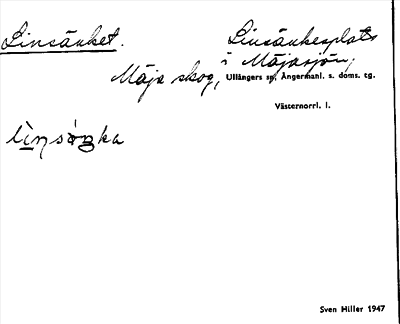 Linsänket. Linsänkesplats
i Mäjasjön,
Mäja skog, Ullångers sn, Ångermanl. s. doms. tg.
Västernorrl. l.
Sven Hiller 1947